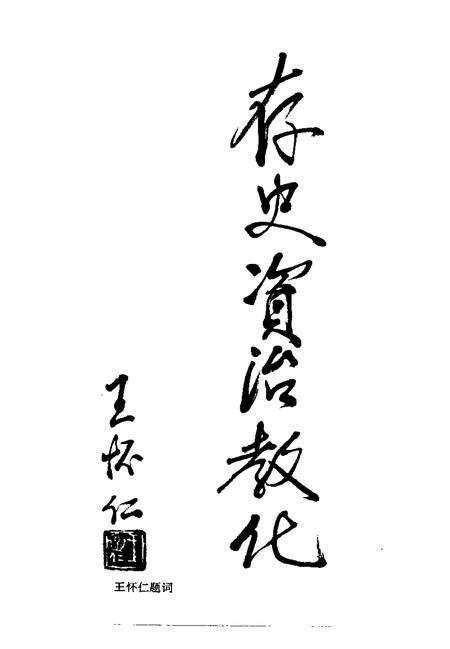 存史資治教化
王怀仁
王怀仁题词